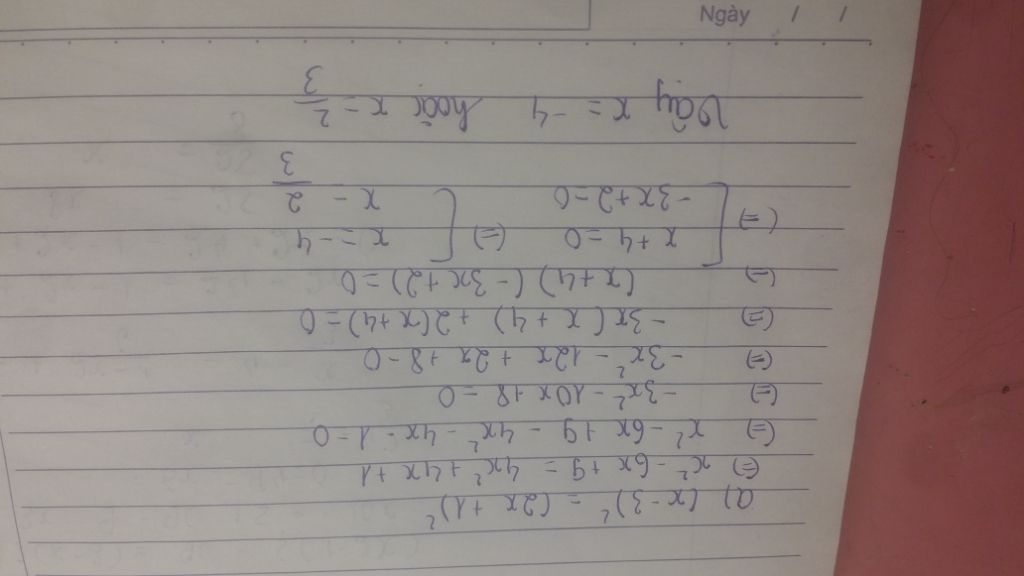 a) (x-3)² = (2x+1)²
(=) x² - 6x + 9 = 4x² + 4x + 1
(=) x² - 6x + 9 - 4x² - 4x - 1 = 0
(=) -3x² - 10x + 8 = 0
(=) -3x² - 12x + 2x + 8 = 0
(=) -3x(x+4) + 2(x+4) = 0
(=) (x+4)(-3x+2) = 0
(=) [ x+4 = 0 (=) [ x = -4
-3x+2 = 0 x = 2/3
Vậy x = -4 hoặc x = 2/3
Ngày / /